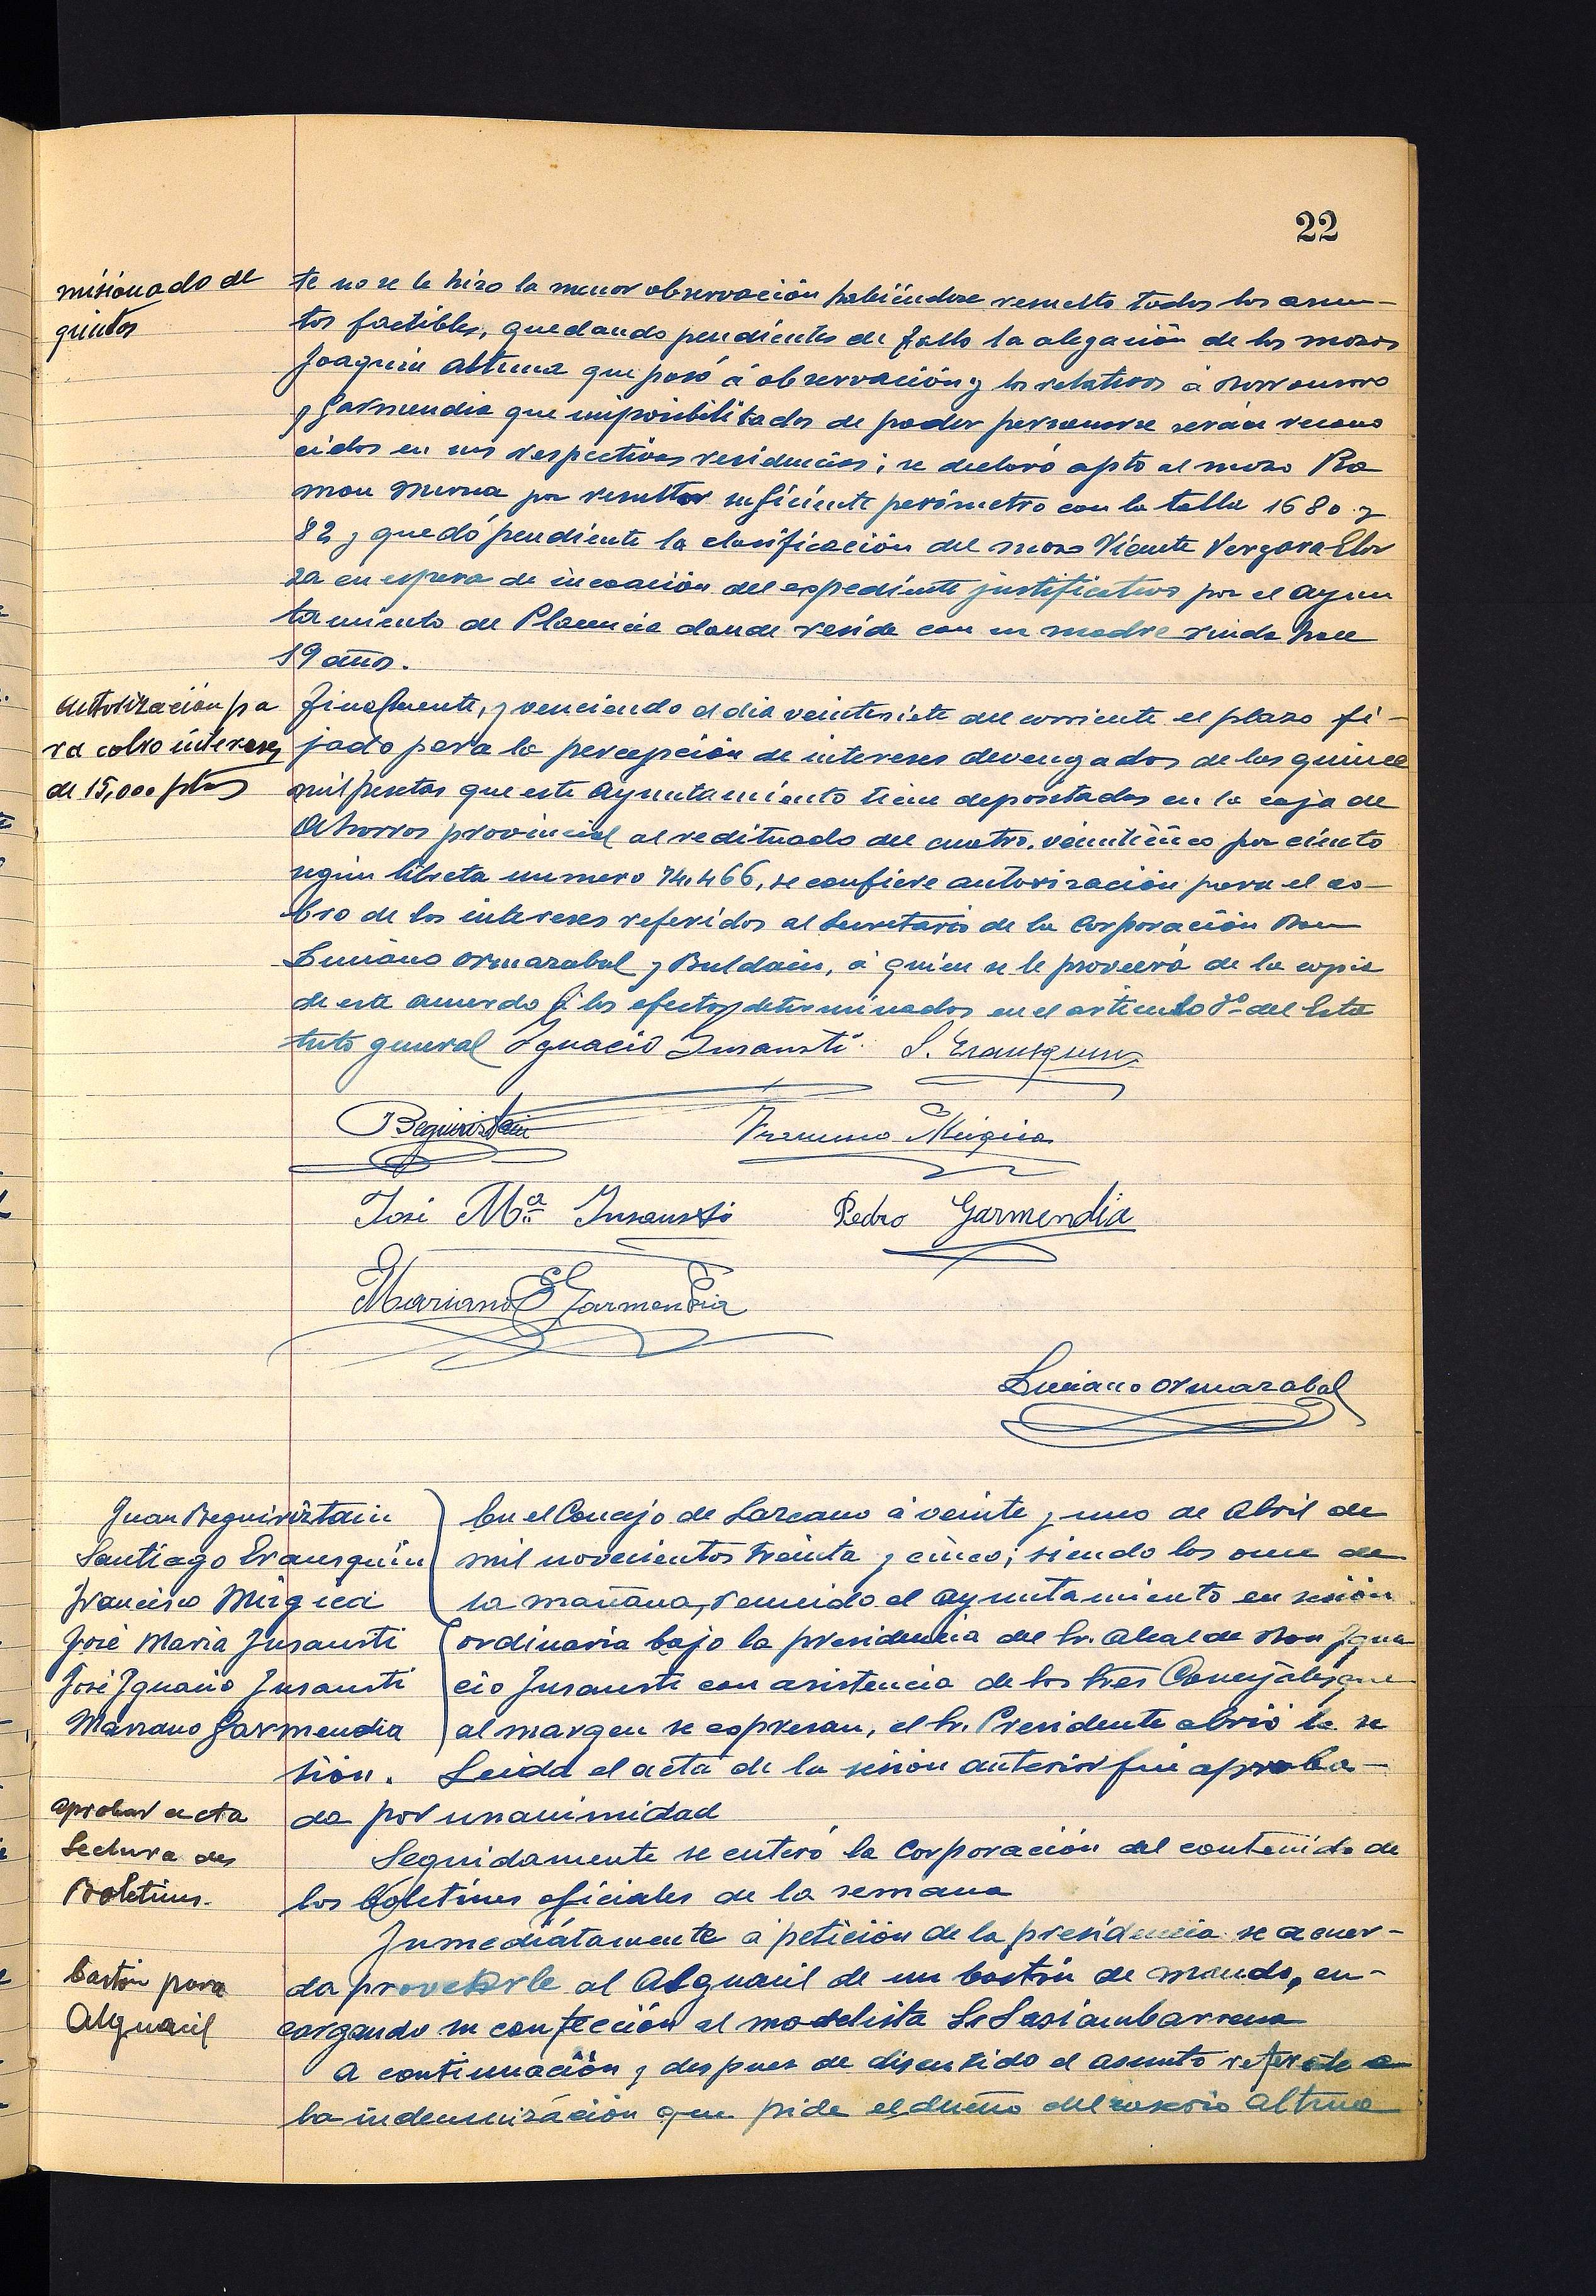 22
misionado de
quintos
te no se le hizo la menor observación habiéndose resuelto todos los asun-
tos factibles, quedando pendientes de fallo la alegación de los mozos
Joaquin Altuna que pasó á observación y los relativos á
y Garmendia que imposibilitados de poder personarse serán recono
cidos en sus respectivas residencias; se declaró apto al mozo Ra
mon por resultar suficiente perímetro con la talla 1680 y
82 y quedó pendiente la clasificación del mozo Vicente Vergara Elor
za en espera de incoación del expediente justificativo por el Ayun
tamiento de Placencia donde reside con su madre viuda hace
19 años.
Autorización pa
ra cobro intereses
de 15,000 ptas
Finalmente, y venciendo el dia veintisiete del corriente el plazo fi-
jado para la percepción de intereses devengados de las quince
mil pesetas que este Ayuntamiento tiene depositadas en la caja de
Ahorros provincial al redituado del cuatro, veinticinco por ciento
según libreta numero 74.466, se confiere autorización para el co-
bro de los intereses referidos al Secretario de la Corporación Don
Luciano Ormazabal y Buldain, á quien se le proveerá de la copia
de este acuerdo á los efectos determinados en el artículo 8º del Esta
tuto general Ignacio Insausti S. Erausquin
Beguiristain Francisco Múgica
José Mª Insausti Pedro Garmendia
Mariano Garmendia
Luciano Ormazabal
Juan Beguiristain
Santiago Erausquin
Francisco Múgica
José Maria Insausti
José Ignacio Insausti
Mariano Garmendia
En el Concejo de Lazcano á veinte y uno de Abril de
mil novecientos treinta y cinco; siendo las once de
la mañana, reunido el Ayuntamiento en sesión
ordinaria bajo la presidencia del Sr. Alcalde Don Igna
cio Insausti con asistencia de los tres Concejales que
al margen se expresan, el Sr. Presidente abrió la se
sión. Leida el acta de la sesión anterior fue aproba-
da por unanimidad
aprobar acta
Lectura de
Boletines.
Seguidamente se enteró la Corporación del contenido de
los boletines oficiales de la semana
Inmediátamente a petición de la presidencia se acuer-
baston para
Alguacil
da proveerle al Alguacil de un bastón de mando, en-
cargando su confección al modelista Sr Lasiambarrena
A continuación y despues de discutido el asunto referente a
la indemnización que pide el dueño del caserio Altuna